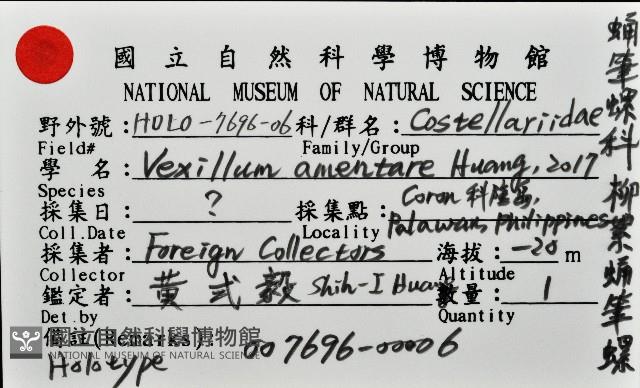 國立自然科學博物館
NATIONAL MUSEUM OF NATURAL SCIENCE
野外號:HOLO-7696-06 科/群名:Costellariidae
Field# Family/Group
學 名:Vexillum amentare Huang, 2017
Species
採集日:? 採集點:Coron 科隆島, Palawan, Philippines
Coll.Date Locality
採集者:Foreign Collectors 海拔:-20 m
Collector Altitude
鑑定者:黃弍毅 Shih-I Huang 數量:1
Det.by Quantity
備註(Remarks): 007696-00006
Holotype
國立自然科學博物館
NATIONAL MUSEUM OF NATURAL SCIENCE
蛹筆螺科 柳絮蛹筆螺